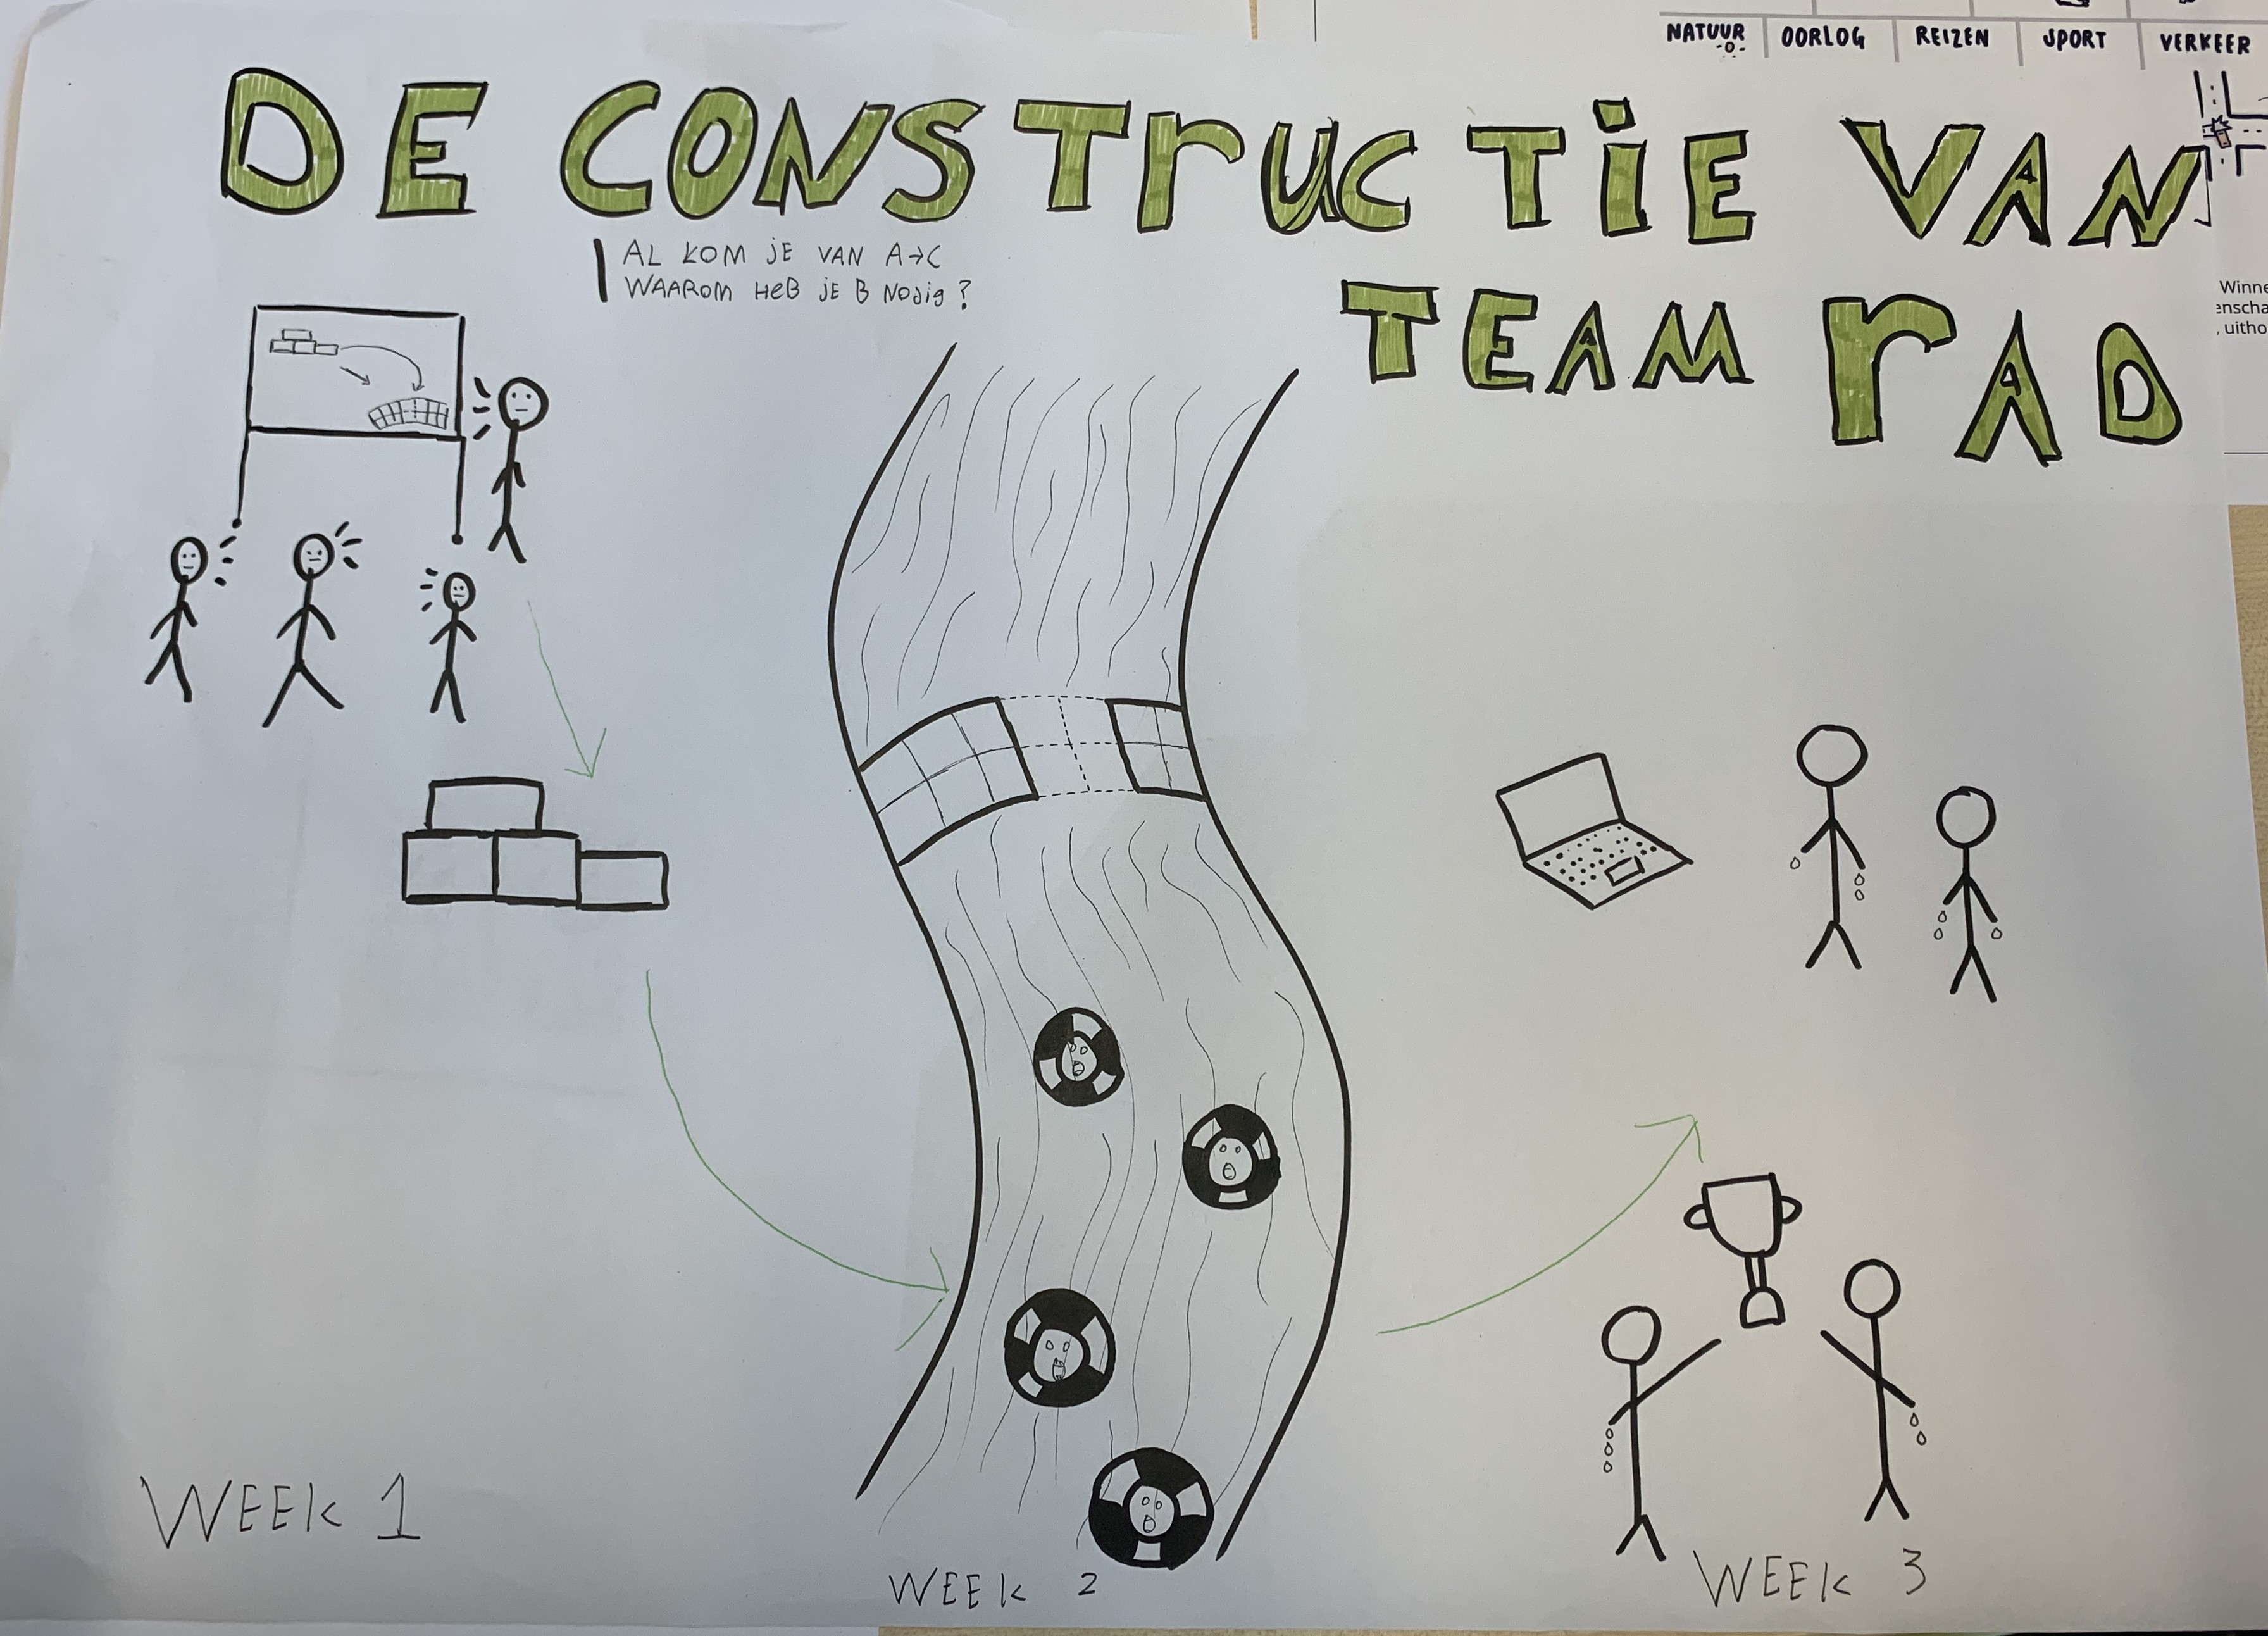 NATUUR OORLOG REIZEN SPORT VERKEER
DE CONSTRUCTIE VAN
TEAM RAD
AL KOM JE VAN A→C
WAAROM HEB JE B NODIG?
WEEK 1
WEEK 2
WEEK 3